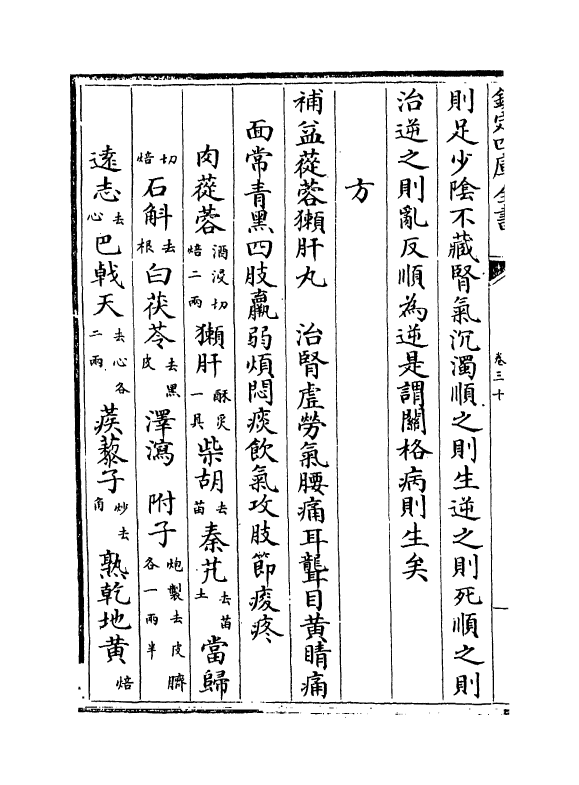 欽定四庫全書
卷三十
則足少陰不藏腎氣沉濁順之則生逆之則死順之則
治逆之則亂反順為逆是謂關格病則生矣
方
補益蓯蓉獺肝丸　治腎虛勞氣腰痛耳聾目黃睛痛
面常青黑四肢羸弱煩悶痰飲氣攻肢節痠疼
肉蓯蓉酒浸切焙二兩　獺肝酥炙一具　柴胡去苗　秦艽去苗土　當歸
切焙　石斛去根　白茯苓去黑皮　澤瀉　附子炮製去皮臍各一兩半
遠志去心　巴戟天去心各二兩　蒺藜子炒去角　熟乾地黄焙